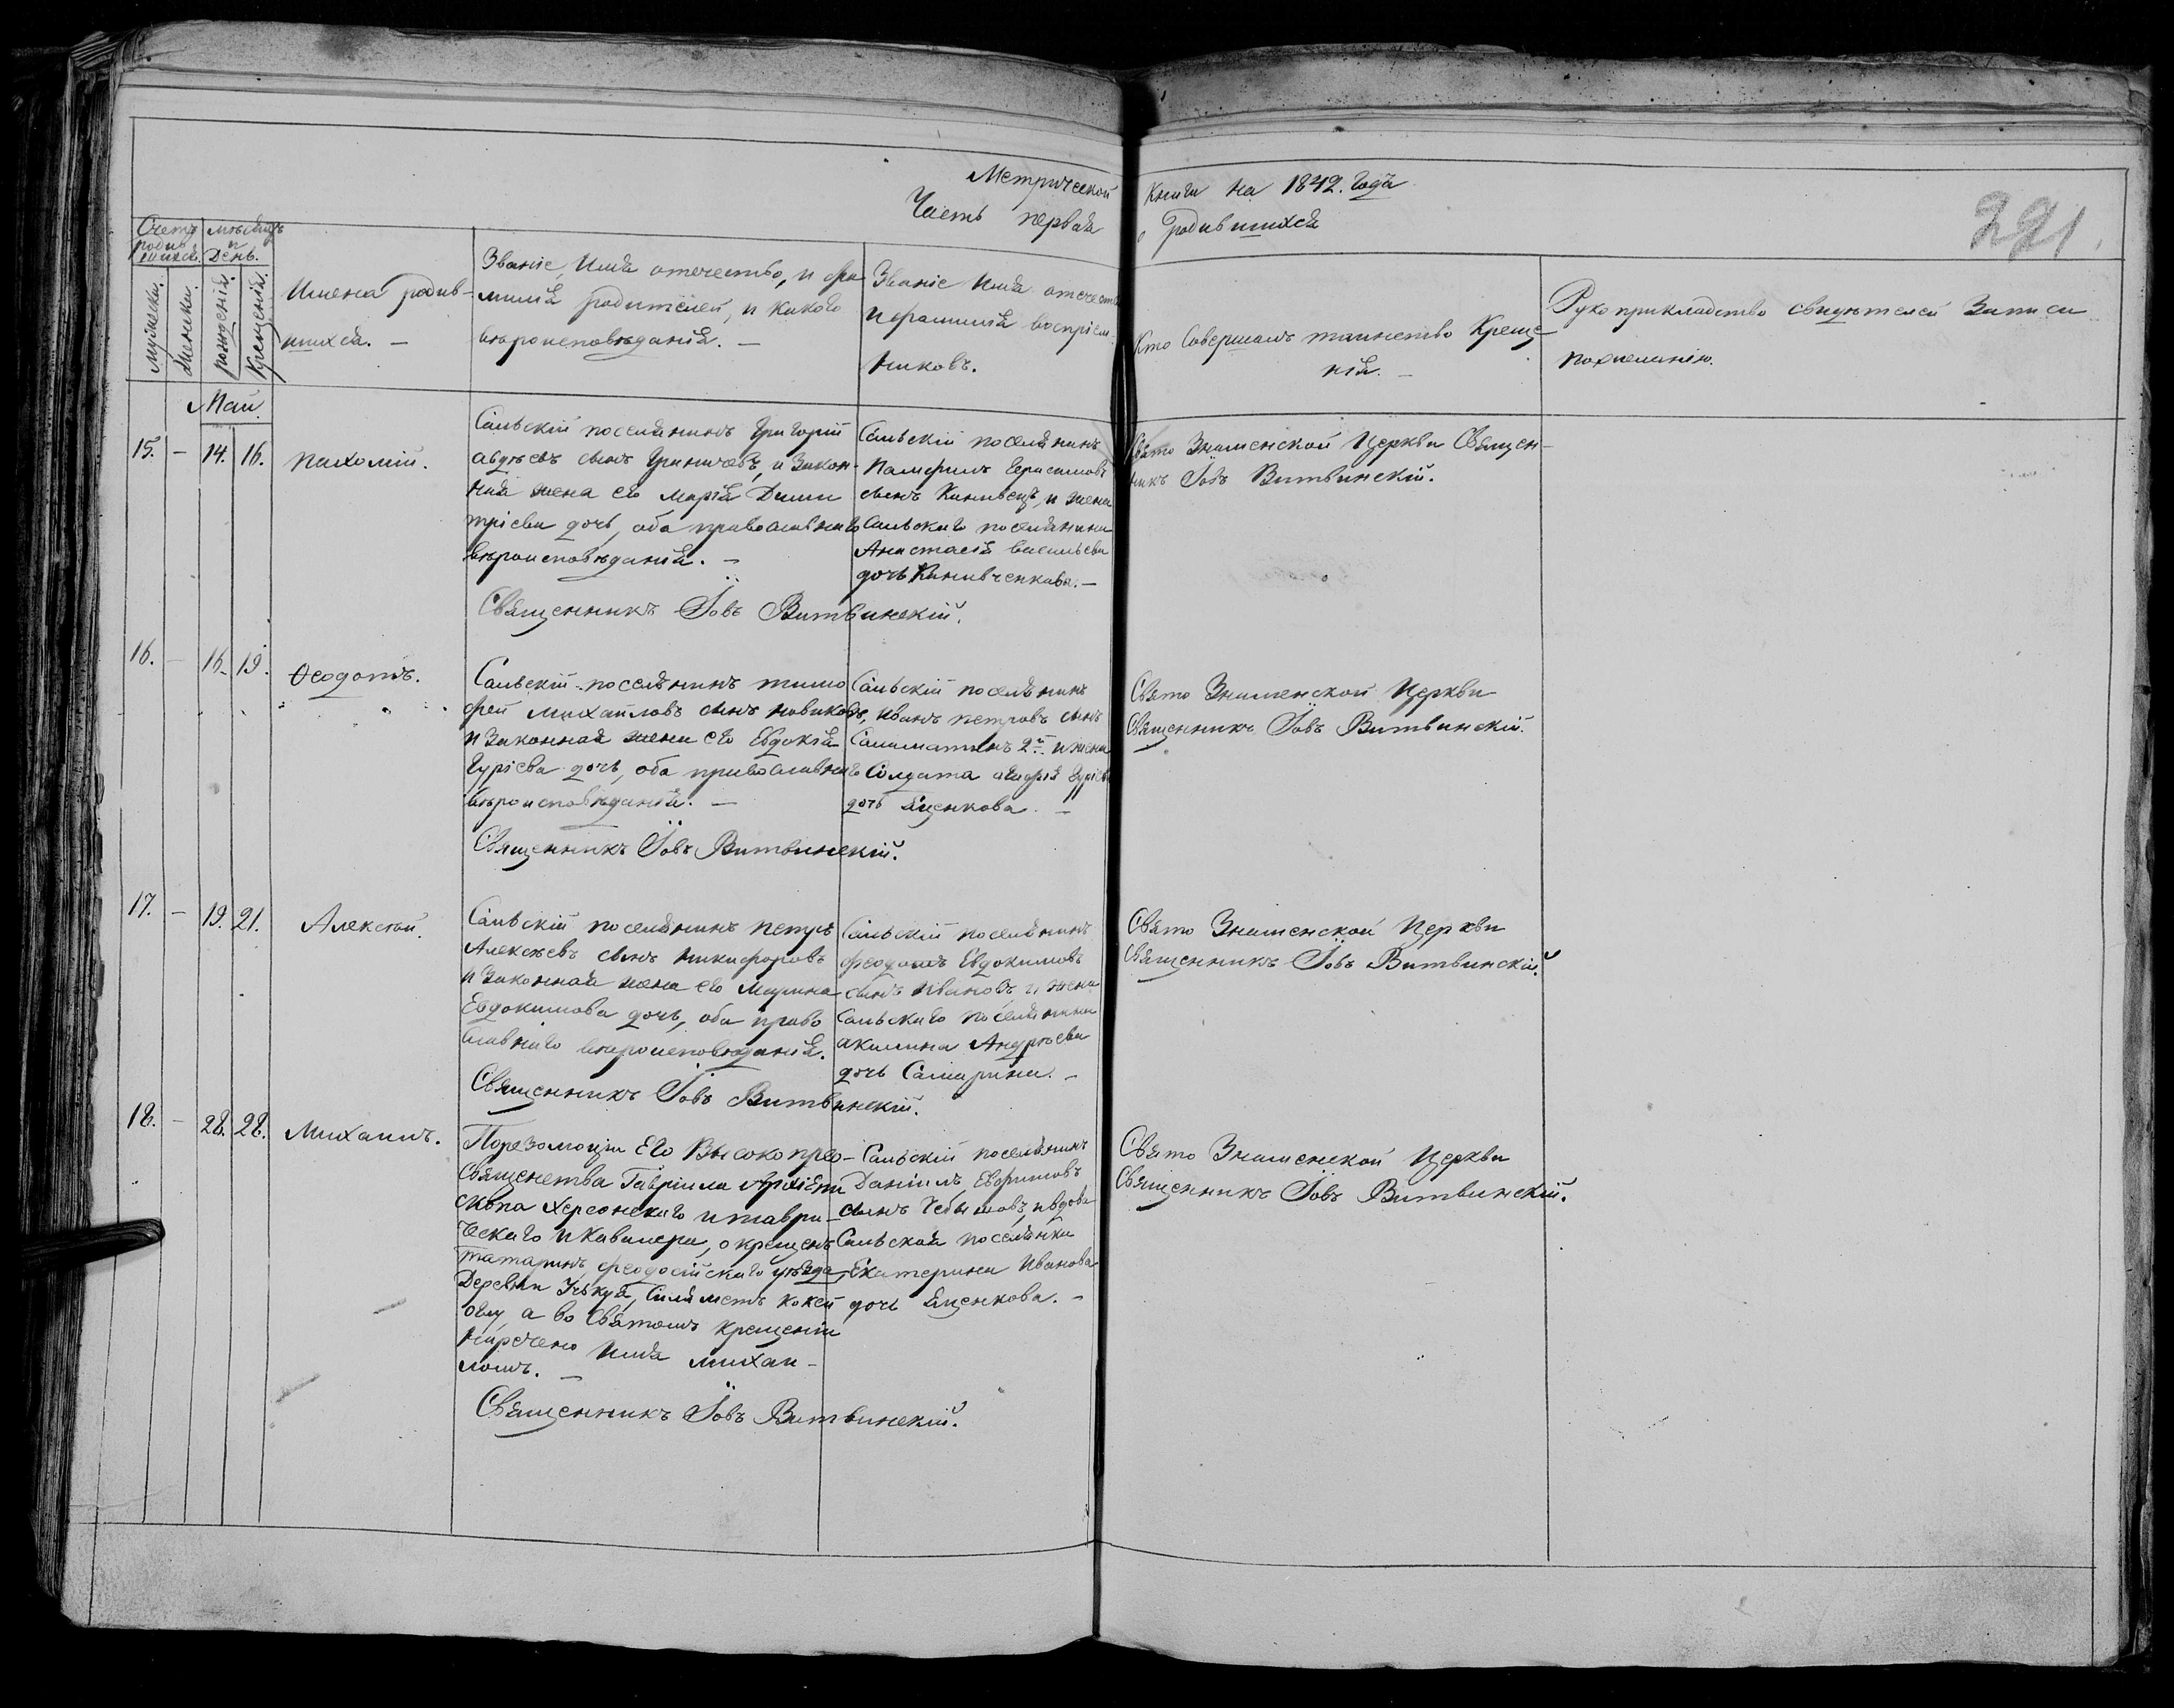 Метрической книги на 1842. Года
Часть первая о родившихся
291.
Счетъ родив
шихся.
мѣсяцъ
и
День.
Мужеска.
Женска.
рожденія.
Крещенія.
Имена родив-
шихся. —
Званіе, Имя отечество, и фа
милія родителей, и какого
вѣроисповѣданія. —
Званіе Имя отечест
и фамилія воспріем-
никовъ.
Кто Совершалъ таинство Креще
нія. —
Рукоприкладство свидѣтелей Записи
по желанію.
Май
15. — 14. 16.
Пахомій.
Сельскій поселянинъ Григорій
Авдѣевъ сынъ Гриничевъ, и Закон-
ная жена его Марія Дими
тріева дочь, оба православнаго
вѣроисповѣданія. —
Священникъ Іовъ Витвинскій.
Сельскій поселянинъ
Памфилъ Герасимовъ
сынъ и жена
Сельскаго поселянина
Анастасія Васильева
дочь —
Свято Знаменской Церкви Священ-
никъ Іовъ Витвинскій.
16. — 16. 19.
Ѳеодотъ.
Сельскій поселянинъ Тимо
фей Михайловъ сынъ Новиковъ,
и Законная жена его Евдокія
Гуріева дочь, оба православнаго
вѣроисповѣданія. —
Священникъ Іовъ Витвинскій.
Сельскій поселянинъ
Иванъ Петровъ сынъ
2й и жена
Солдата Гуріева
дочь Яценкова. —
Свято Знаменской Церкви
Священникъ Іовъ Витвинскій.
17. — 19. 21.
Алексѣй.
Сельскій поселянинъ Петръ
Алексѣевъ сынъ Никифоровъ
и Законная жена его Марина
Евдокимова дочь, оба право
славнаго вѣроисповѣданія.
Священникъ Іовъ Витвинскій.
Сельскій поселянинъ
Феодотъ Евдокимовъ
сынъ Ивановъ, и жена
Сельскаго поселянина
Акилина Андрѣева
дочь Самарина. —
Свято Знаменской Церкви
Священникъ Іовъ Витвинскій.
18. — 28. 28.
Михаилъ.
По резолюціи Его Высокопрео-
Священства Гавріила Архіепи
скопа Херсонскаго и Таври-
ческаго и Кавалера, окрещенъ
Татаринъ Феодосійскаго уѣзда,
Деревни Учькуя, Селяметъ Кокей
оглу, а во Святомъ Крещеніи
Наречено Имя Михаи-
ломъ. —
Священникъ Іовъ Витвинскій.
Сельскій поселянинъ
Даніилъ Евфимовъ
сынъ Чебышовъ, и вдова
Сельская поселянка
Екатерина Иванова
дочь Яценкова. —
Свято Знаменской Церкви
Священникъ Іовъ Витвинскій.